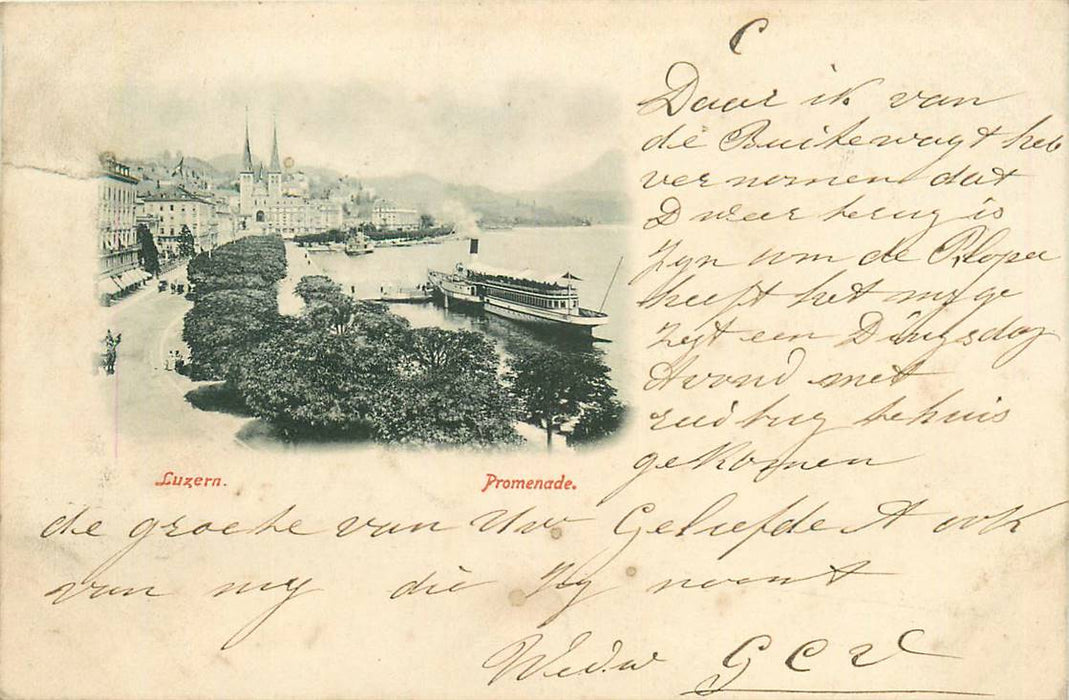 C
Daar ik van
de Buitewagt heb
vernomen dat
D weer terug is
Zyn om de
heeft het my ge
Zegt een Dingsdag
Avond met
tehuis
gekomen
Luzern.
Promenade.
de groete van Uw Geliefde A ook
van my die Zig noemt
Wed.w G C V